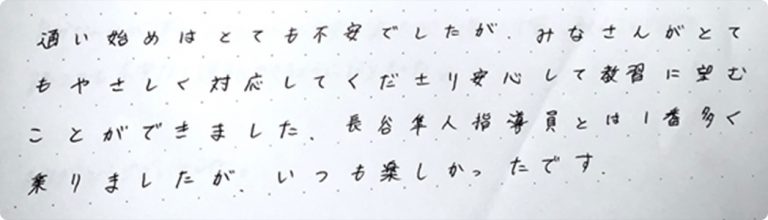 通い始めはとても不安でしたが、みなさんがとて
もやさしく対応してくださり安心して教習に望む
ことができました、長谷隼人指導員とは1番多く
乗りましたが、いつも楽しかったです.